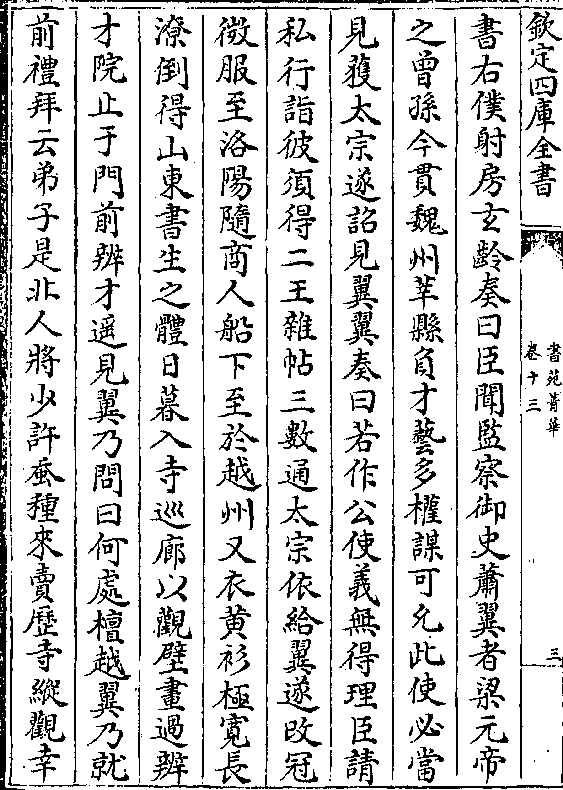 欽定四庫全書
書苑菁華
卷十三
三
書右僕射房玄齡奏曰臣聞監察御史蕭翼者梁元帝
之曾孫今貫魏州莘縣負才藝多權謀可允此使必當
見獲太宗遂詔見翼翼奏曰若作公使義無得理臣請
私行詣彼須得二王雜帖三數通太宗依給翼遂改冠
微服至洛陽隨商人船下至於越州又衣黄衫極寛長
潦倒得山東書生之體日暮入寺巡廊以觀壁畫過辨
才院止于門前辨才遥見翼乃問曰何處檀越翼乃就
前禮拜云弟子是北人將少許蚕種來賣歴寺縱觀幸